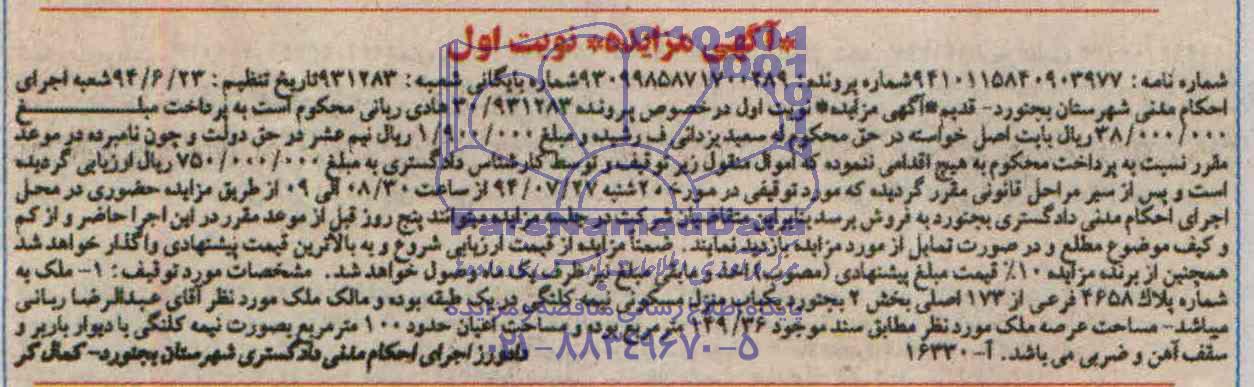 *آگهی مزایده* نوبت اول
شماره نامه: ۹۴۱۰۱۱۵۸۴۰۹۰۳۹۷۷ شماره پرونده: ۹۳۰۹۹۸۵۸۷۱۷۰۰۲۸۹ شماره بایگانی شعبه: ۹۳۱۲۸۳ تاریخ تنظیم: ۹۴/۶/۲۳ شعبه اجرای
احکام مدنی شهرستان بجنورد- قدیم*آگهی مزایده* نوبت اول درخصوص پرونده ۳۰/۹۳۱۲۸۳ هادی ربانی محکوم است به پرداخت مبلغ
۳۸/۰۰۰/۰۰۰ ریال بابت اصل خواسته در حق محکوم له سعید یزدانی ف رشیده و مبلغ ۱/۹۰۰/۰۰۰ ریال نیم عشر در حق دولت و چون نامبرده در موعد
مقرر نسبت به پرداخت محکوم به هیچ اقدامی ننموده که اموال منقول زیر توقیف و توسط کارشناس دادگستری به مبلغ ۷۵۰/۰۰۰/۰۰۰ ریال ارزیابی گردیده
است و پس از سیر مراحل قانونی مقرر گردیده که مورد توقیفی در مورخ ۲۰ شنبه ۹۴/۰۷/۲۷ از ساعت ۰۸/۳۰ الی ۰۹ از طریق مزایده حضوری در محل
اجرای احکام مدنی دادگستری بجنورد به فروش برسد بنابراین متقاضیان شرکت در جلسه مزایده میتوانند پنج روز قبل از موعد مقرر در این اجرا حاضر و از کم
و کیف موضوع مطلع و در صورت تمایل از مورد مزایده بازدید نمایند. ضمناً مزایده از قیمت ارزیابی شروع و به بالاترین قیمت پیشنهادی واگذار خواهد شد
همچنین از برنده مزایده ۱۰٪ قیمت مبلغ پیشنهادی (مصوب) اخذ و مابقی مبلغ نیز ظرف یک ماه وصول خواهد شد. مشخصات مورد توقیف: ۱- ملک به
شماره پلاک ۴۶۵۸ فرعی از ۱۷۳ اصلی بخش ۲ بجنورد یکباب منزل مسکونی نیمه کلنگی در یک طبقه بوده و مالک ملک مورد نظر آقای عبدالرضا ربانی
میباشد- مساحت عرصه ملک مورد نظر مطابق سند موجود ۱۴۹/۳۶ مترمربع بوده و مساحت اعیان حدود ۱۰۰ مترمربع بصورت نیمه کلنگی با دیوار باربر و
سقف آهن و ضربی می باشد. آ-۱۶۳۳۰
دادورز اجرای احکام مدنی دادگستری شهرستان بجنورد- کمال کر
ParsNamadData
پایگاه اطلاع رسانی مناقصه و مزایده
۰۲۱-۸۸۳۴۹۶۷۰-۵